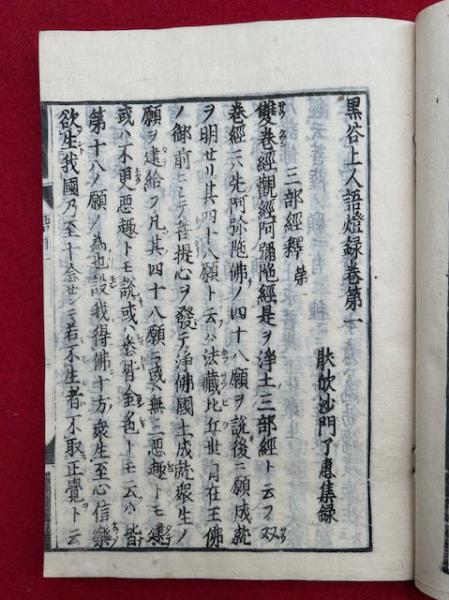 黒谷上人語燈録巻第一
厭欣沙門了惠集録
三部經釋 第一
雙巻經觀經阿彌陀經是ヲ浄土三部經ト云フ双
巻經ニハ先阿弥陀佛ノ四十八願ヲ説後ニ願成就
ヲ明セリ其四十八願ト云ハ法藏比丘世自在王佛
ノ御前ニシテ菩提心ヲ發テ浄佛國土成就衆生ノ
願ヲ建給フ凡其四十八願ニ或ハ無三惡趣トモ建
或ハ不更惡趣トモ説或ハ悉皆金色トモ云ハ皆
第十八ノ願ノ為也設我得佛十方衆生至心信樂
欲生我國乃至十念センニ若不生者不取正覺ト云